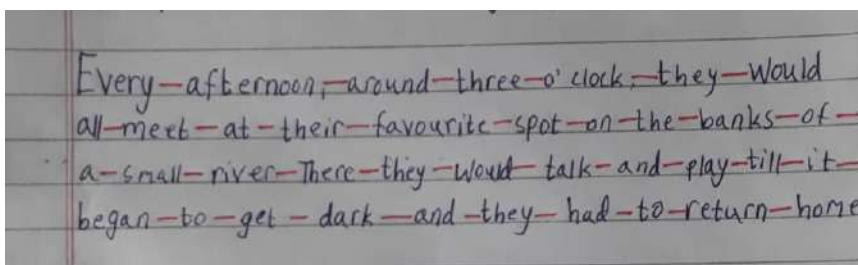 Every afternoon, around three o' clock, they would
all meet at their favourite spot on the banks of
a small river There they would talk and play till it
began to get dark and they had to return home